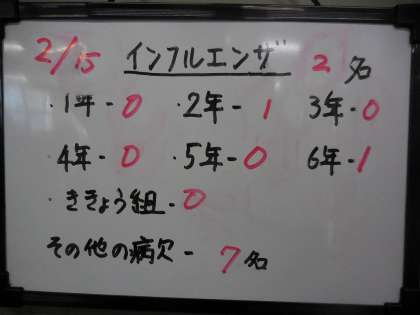 2/15 インフルエンザ 2名
・1年-0 ・2年-1 3年-0
4年-0 ・5年-0 6年-1
・ききょう組-0
その他の病欠- 7名